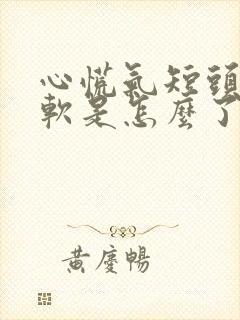 心慌氣短頭
軟是怎麼了
黃慶暢